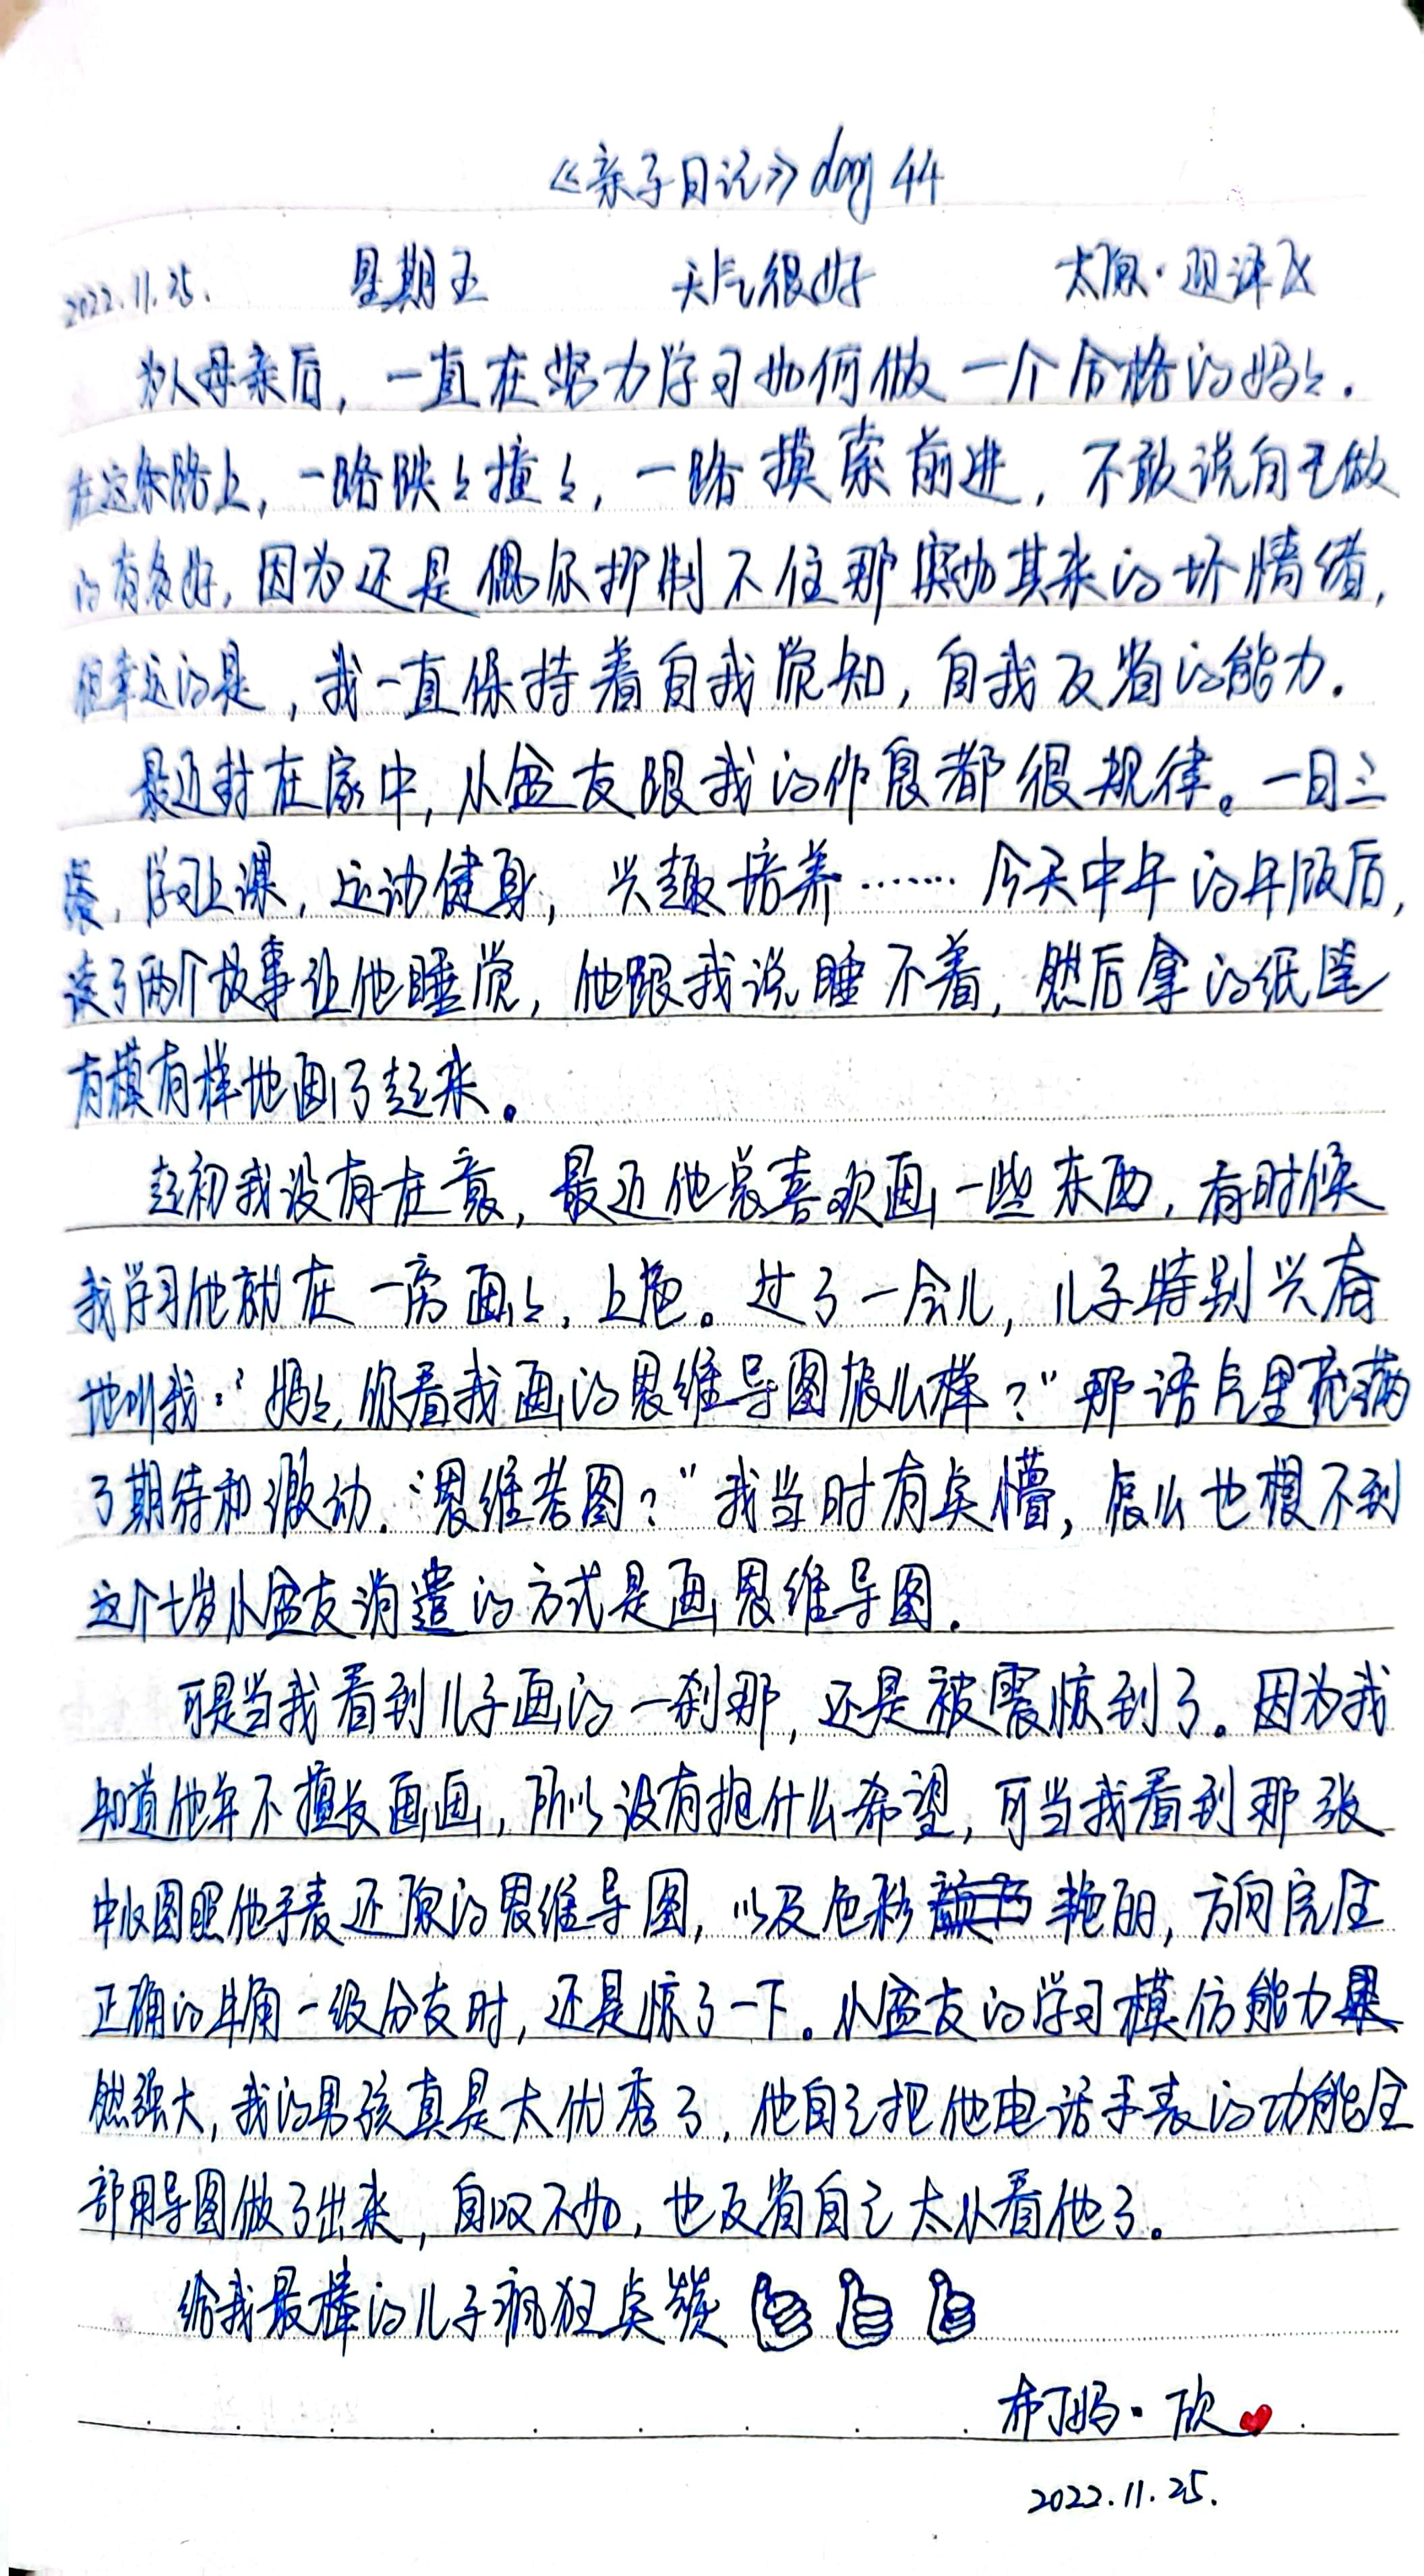 《亲子日记》day 44
2022.11.25. 星期五 天气很好 太原·迎泽区
为人母亲后，一直在努力学习如何做一个合格的妈妈.
在这条路上，一路跌跌撞撞，一路摸索前进，不敢说自己做
的有多好，因为还是偶尔抑制不住那突如其来的坏情绪，
但幸运的是，我一直保持着自我觉知，自我反省的能力.
最近封在家中，小盆友跟我的作息都很规律。一日三
餐，学习上课，运动健身，兴趣培养……今天中午的午饭后，
读了两个故事让他睡觉，他跟我说睡不着，然后拿的纸笔
有模有样地画了起来。
起初我没有在意，最近他总喜欢画一些东西，有时候
我学习他就在一旁画画，上色。过了一会儿，儿子特别兴奋
地叫我："妈妈，你看我画的思维导图怎么样？"那语气里充满
了期待和激动."思维导图？"我当时有点懵，怎么也想不到
这个七岁小盆友消遣的方式是画思维导图.
可是当我看到儿子画的一刹那，还是被震惊到了。因为我
知道他并不擅长画画，所以没有抱什么希望，可当我看到那张
中心图照他手表还原的思维导图，以及色彩艳丽，方向完全
正确的牛角一级分支时，还是惊了一下。小盆友的学习模仿能力果
然强大，我的男孩真是太优秀了，他自己把他电话手表的功能全
部用导图做了出来，自叹不如，也反省自己太小看他了。
给我最棒的儿子疯狂点赞
布丁妈·欣
2022.11.25.